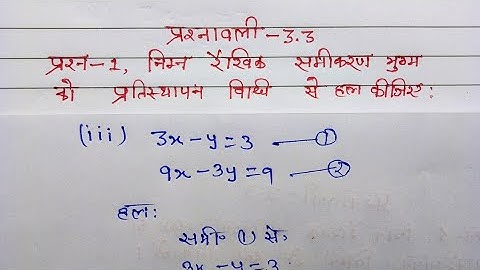 प्रश्नावली -3.3
प्रश्न-1, निम्न रैखिक समीकरण युग्म
को प्रतिस्थापन विधि से हल कीजिए:
(iii) 3x-y=3 —①
9x-3y=9 —②
हल:
समी॰ ① से,
3x-y=3